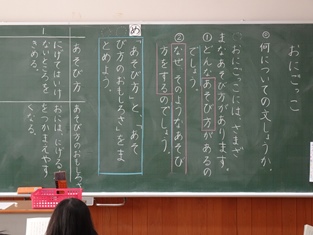 おにごっこ
◎何についての文しょうか。
おにごっこには、さまざ
まなあそび方があります。
①どんなあそび方があるの
でしょう。
②なぜ、そのようなあそび
方をするのでしょう。
め
「あそび方」と、「あそ
び方のおもしろさ」をま
とめよう。
あそび方
にげてはいけ
ないところを
きめる。
あそび方のおもしろさ
おには、にげる
をつかまえやす
くなる。